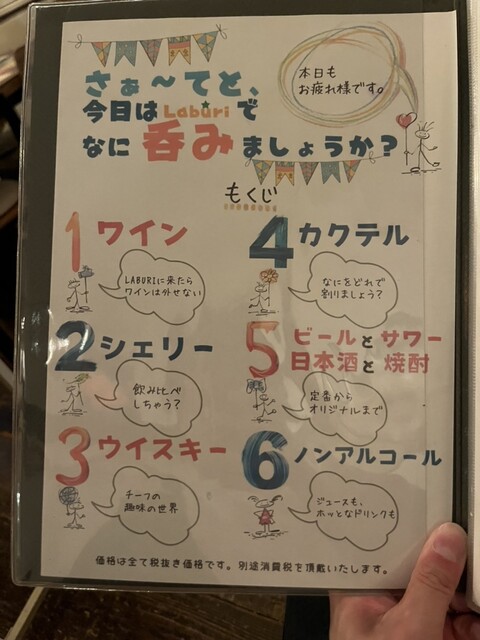 さぁ〜てと、
今日は Laburi で
なに 呑み ましょうか？
本日も
お疲れ様です。
もくじ
1 ワイン
LABURIに来たら
ワインは外せない
2 シェリー
飲み比べ
しちゃう？
3 ウイスキー
チーフの
趣味の世界
4 カクテル
なにをどれで
割りましょう？
5 ビールとサワー
日本酒と焼酎
定番から
オリジナルまで
6 ノンアルコール
ジュースも、
ホッとなドリンクも
価格は全て税抜き価格です。別途消費税を頂戴いたします。